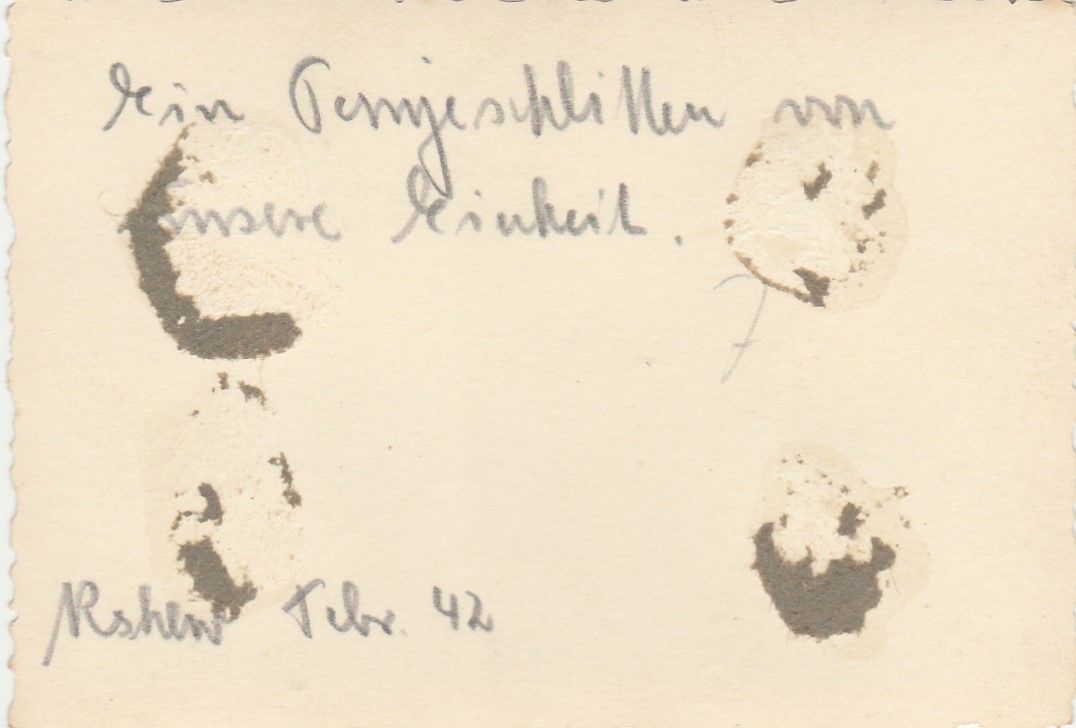 Ein Panjeschlitten von
unsere Einheit.
7
Rshew Febr. 42